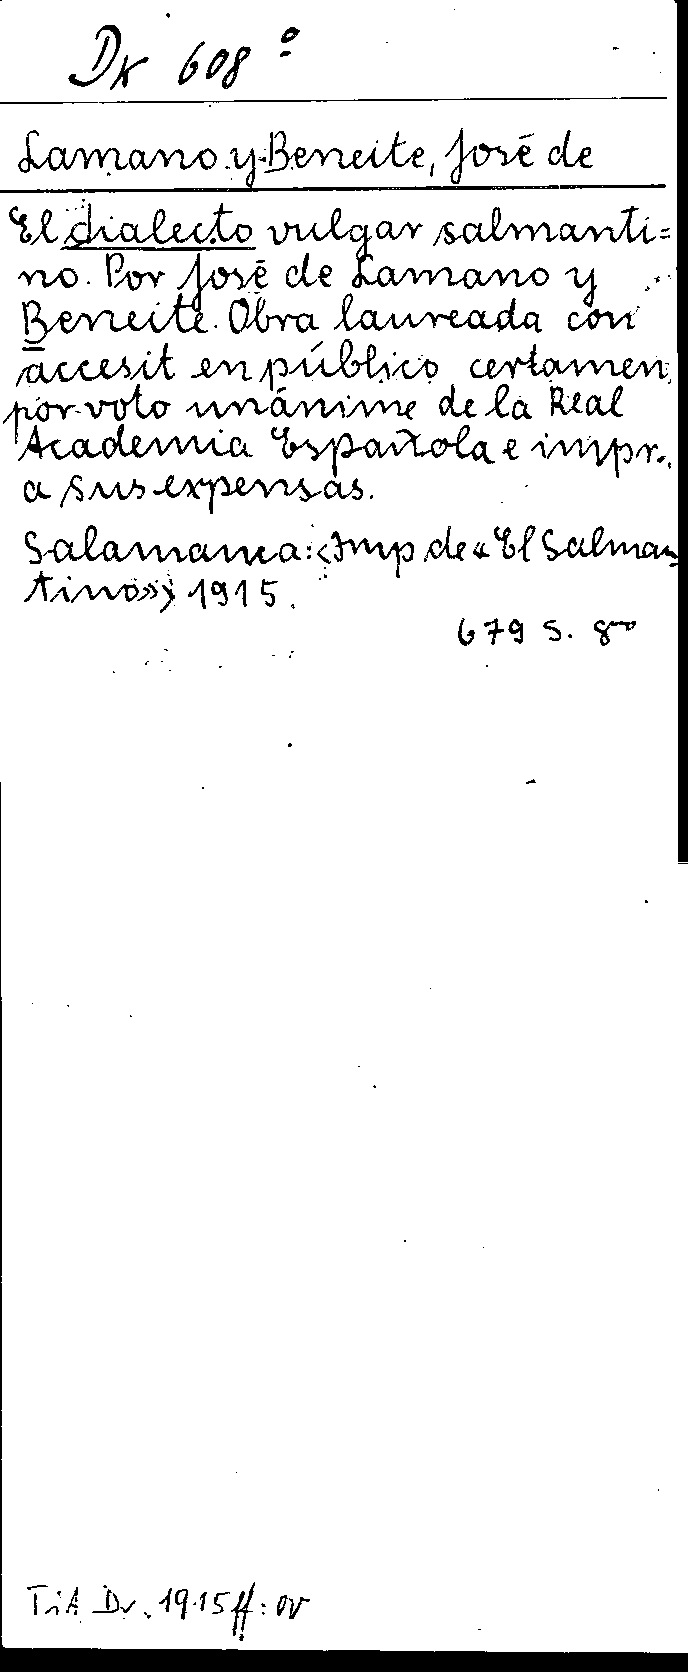 DK 608 º
Lamano y Beneite, José de
El dialecto vulgar salmanti=
no. Por José de Lamano y
Beneite. Obra laureada con
accesit en público certamen
por voto unánime de la Real
Academia Española e impr.
a sus expensas.
Salamanca: <Imp de «El Salman
tino»> 1915.
679 S. 8º
TiA Dr. 1915 ff: ov